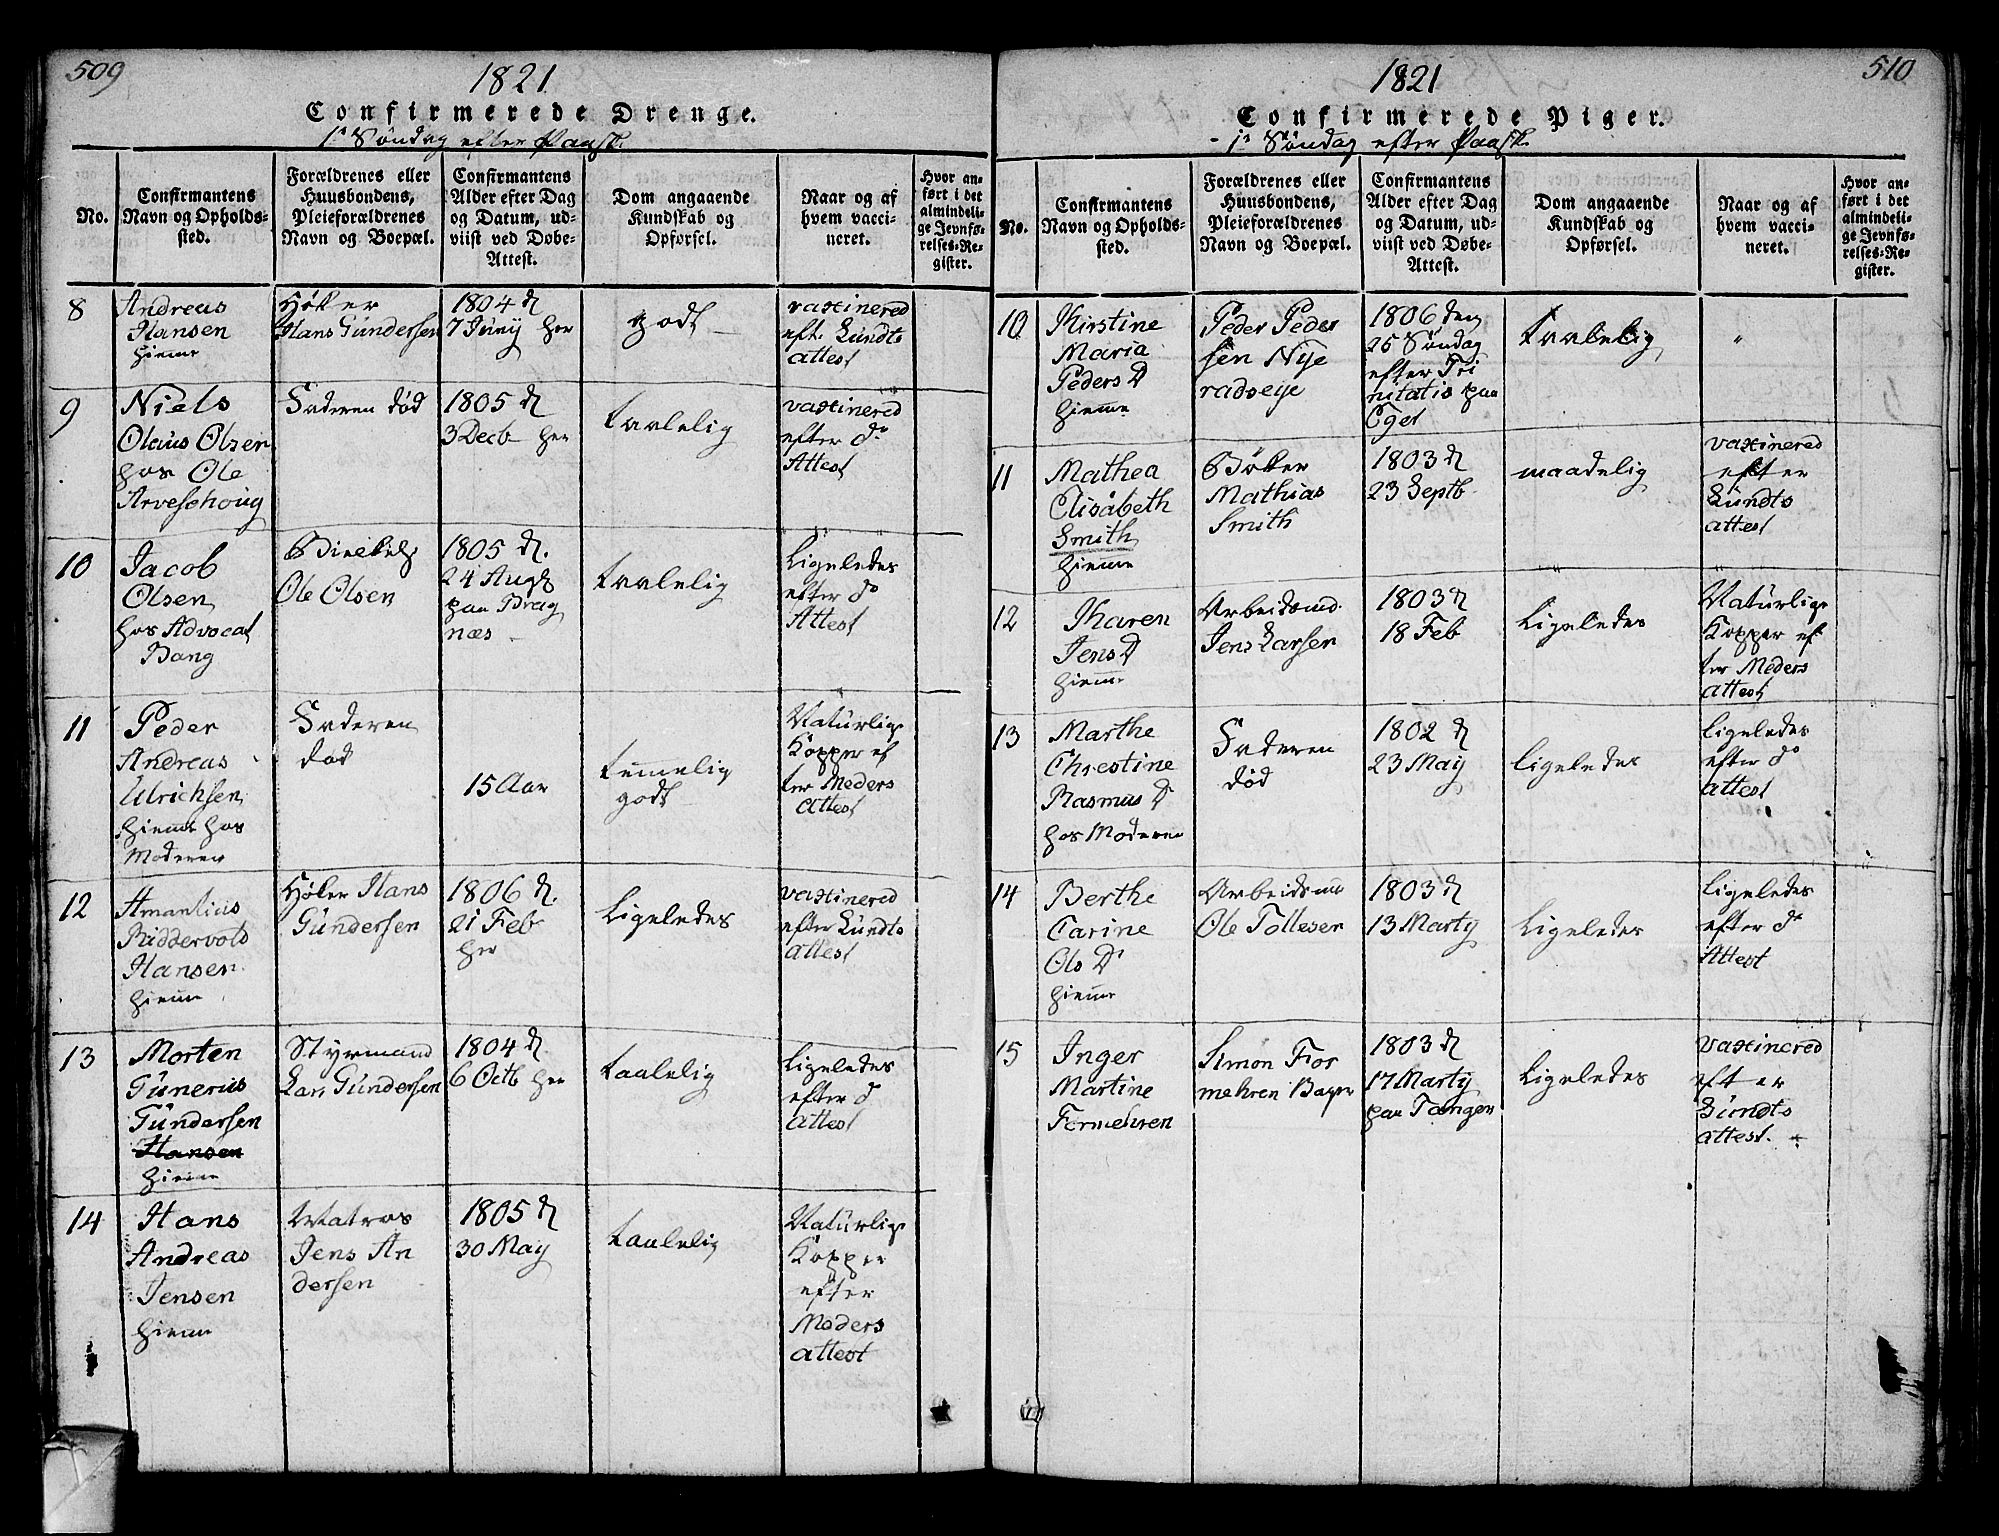 509
1821
Confirmerede Drenge.
1ste Søndag efter Paaske
No.
Confirmantens
Navn og Opholds-
sted.
Forældrenes eller
Huusbondens,
Pleieforældrenes
Navn og Boepæl.
Confirmantens
Alder efter Dag
og Datum, ud-
viist ved Døbe-
Attest.
Dom angaaende
Kundskab og
Opførsel.
Naar og af
hvem vacci-
neret.
Hvor an-
ført i det
almindeli-
ge Jevnfø-
relses-Re-
gister.
8
Andreas
Hansen
hiemme
Høker
Hans Gundersen
1804 d
7 Juny her
godt
vaxinered
eft. Lundts
attest
9
Niels
Olaus Olsen
hos Ole
Arveschoug
Faderen død
1805 d
3 Decb her
taalelig
vaxinered
efter do
Attest
10
Jacob
Olsen
hos Advocat
Bang
Ole Olsen
1805 d.
24 Augt
paa Brag
næs
taalelig
Ligeledes
efter do
Attest
11
Peder
Andreas
Ulrichsen
hiemme hos
Moderen
Faderen
død
15 Aar
temmelig
godt
Naturlige
Kopper ef
ter Meders
Attest
12
Amantius
Riddervold
Hansen
hiemme
Høker Hans
Gundersen
1806 d.
21 Feb
her
Ligeledes
vaxinered
efter Lundts
attest
13
Morten
Gunerius
Gundersen
Hansen
hiemme
Styrmand
Lars Gundersen
1804 d.
6 Octb her
taalelig
Ligeledes
efter d
attest
14
Hans
Andreas
Jensen
hiemme
Matros
Jens An
dersen
1805 d
30 May
taalelig
Naturlige
Kopper
efter
Meders
attest
510
1821
Confirmerede Piger.
1ste Søndag efter Paaske
No.
Confirmantens
Navn og Opholds-
sted.
Forældrenes eller
Huusbondens,
Pleieforældrenes
Navn og Boepæl.
Confirmantens
Alder efter Dag
og Datum, ud-
viist ved Døbe-
Attest.
Dom angaaende
Kundskab og
Opførsel.
Naar og af
hvem vacci-
neret.
Hvor an-
ført i det
almindeli-
ge Jevnfø-
relses-Re-
gister.
10
Kirstine
Maria
Peders D
hiemme
Peder Peder
sen Nye
radseye
1806 den
25 Søndag
efter Tri
nitatis paa
Eger
taalelig
"
11
Mathea
Elisabeth
Smith
hiemme
Bøker
Mathias
Smith
1803 d
23 Septb
maadelig
vaxinered
efter
Lundts
attest
12
Karen
Jens D
hiemme
Arbeidsmd.
Jens Larsen
1803 d
18 Feb
Ligeledes
Naturlige
Kopper ef
ter Meders
attest
13
Marthe
Chrestine
Rasmus D
hos Moderen
Faderen
død
1802 d
23 May
ligeledes
Ligeledes
efter do
attest
14
Berthe
Carine
Ols D
hiemme
Arbeidsmd
Ole Tollesen
1803 d
13 Marty
Ligeledes
Ligeledes
efter do
Attest
15
Inger
Martine
Formehren
Simon For
mehren Bager
1803 d
17 Marty
paa Tangen
Ligeledes
vaxinered
efter
Lundts
attest.